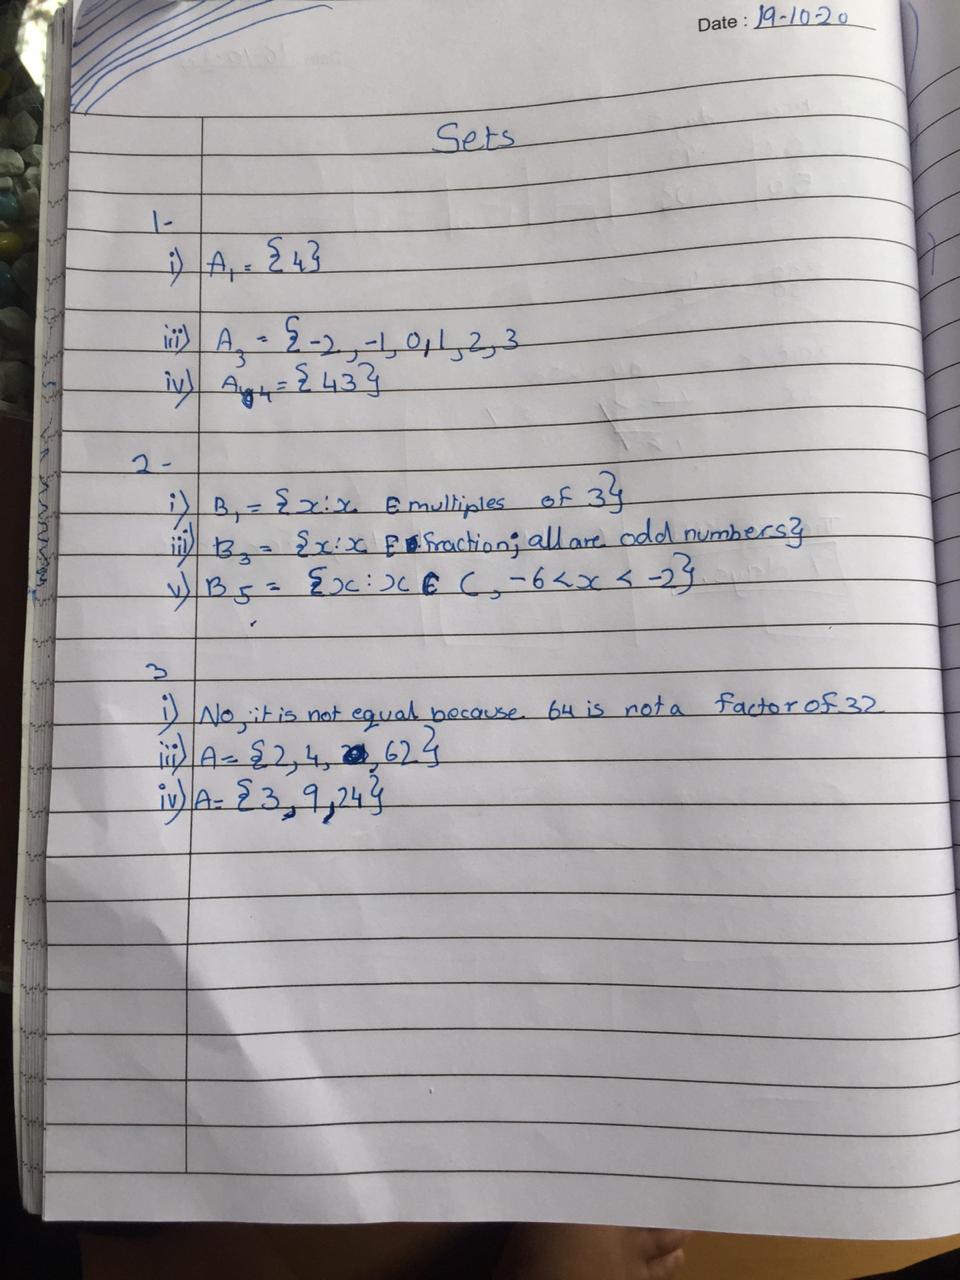 Date : 19-10-20
Sets
1-
i) A₁ = {4}
iii) A₃ = {-2, -1, 0, 1, 2, 3
iv) A₄ = {43}
2-
i) B₁ = {x:x E multiples of 3}
iii) B₃ = {x:x E fraction; all are odd numbers}
v) B₅ = {x:x E C, -6<x < -2}
3
i) No, it is not equal because 64 is not a factor of 32
iii) A = {2, 4, , 62}
iv) A = {3, 9, 24}